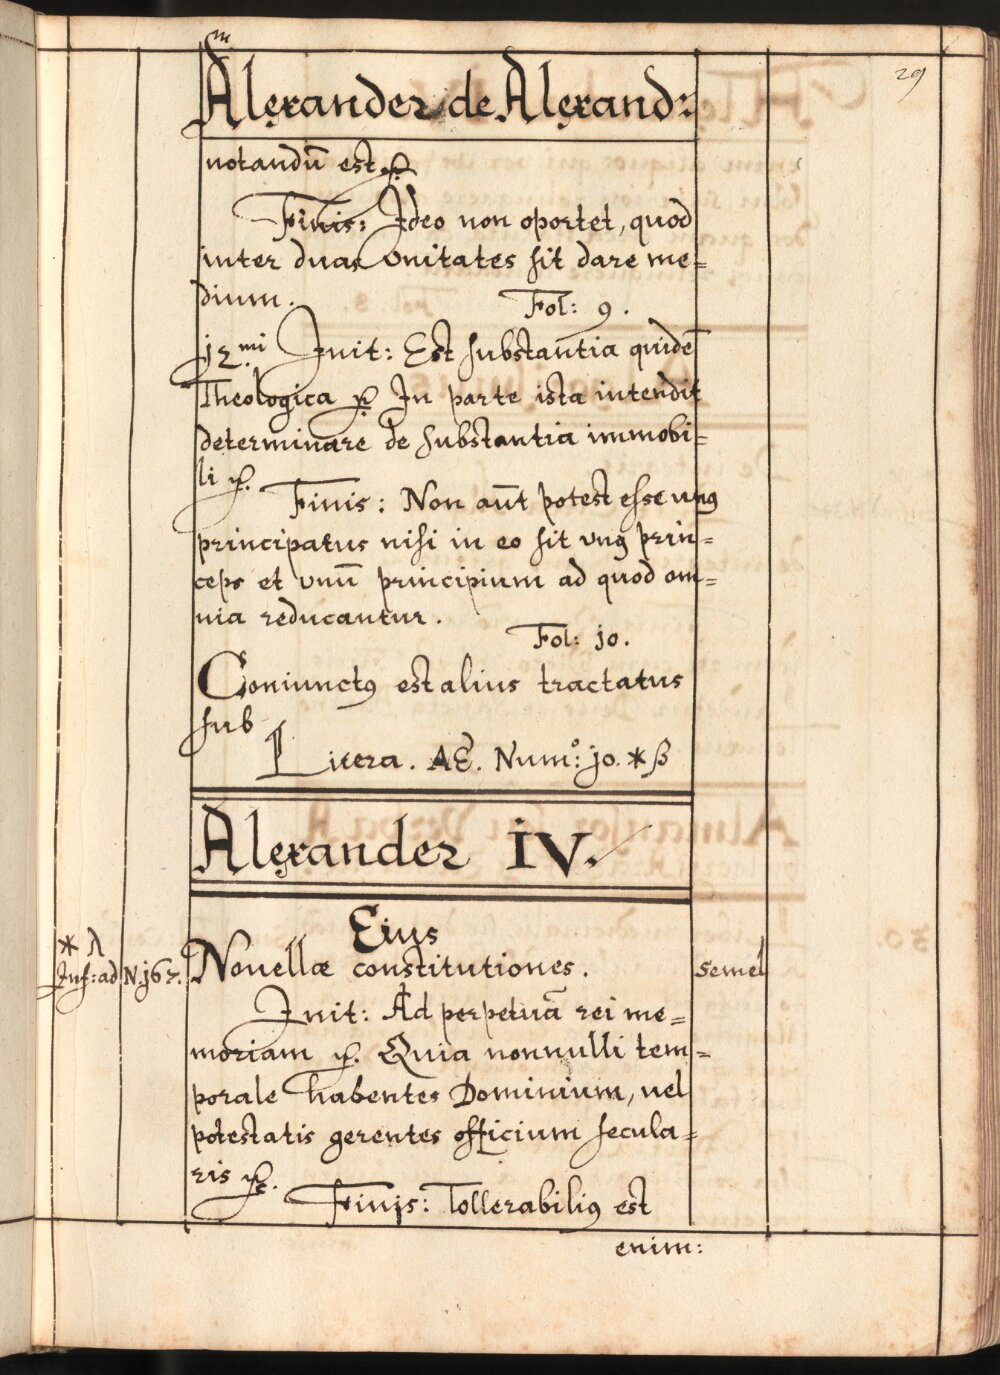 29
Alexander de Alexand:
notandũ est &c.
Finis: Ideo non oportet, quod
inter duas Vnitates sit dare me=
dium. Fol: 9.
12.mi Init: Est substantia quidẽ
Theologica &c. In parte ista intendit
determinare de substantia immobi=
li &c.
Finis: Non aũt potest esse vnꝰ
principatus nisi in eo sit vnꝰ prin=
ceps et vnũ principium ad quod om=
nia reducantur.
Fol: 10.
Coniunctꝰ est alius tractatus
sub
Litera. AE. Num:o 10. * β
Alexander IV.
Eius
* λ
Inf: ad N. 162. Nouellæ constitutiones. Semel
Init: Ad perpetuã rei me=
moriam &c. Quia nonnulli tem=
porale habentes Dominium, vel
potestatis gerentes officium secula=
ris &c.
Finis: Tollerabiliꝰ est
enim: